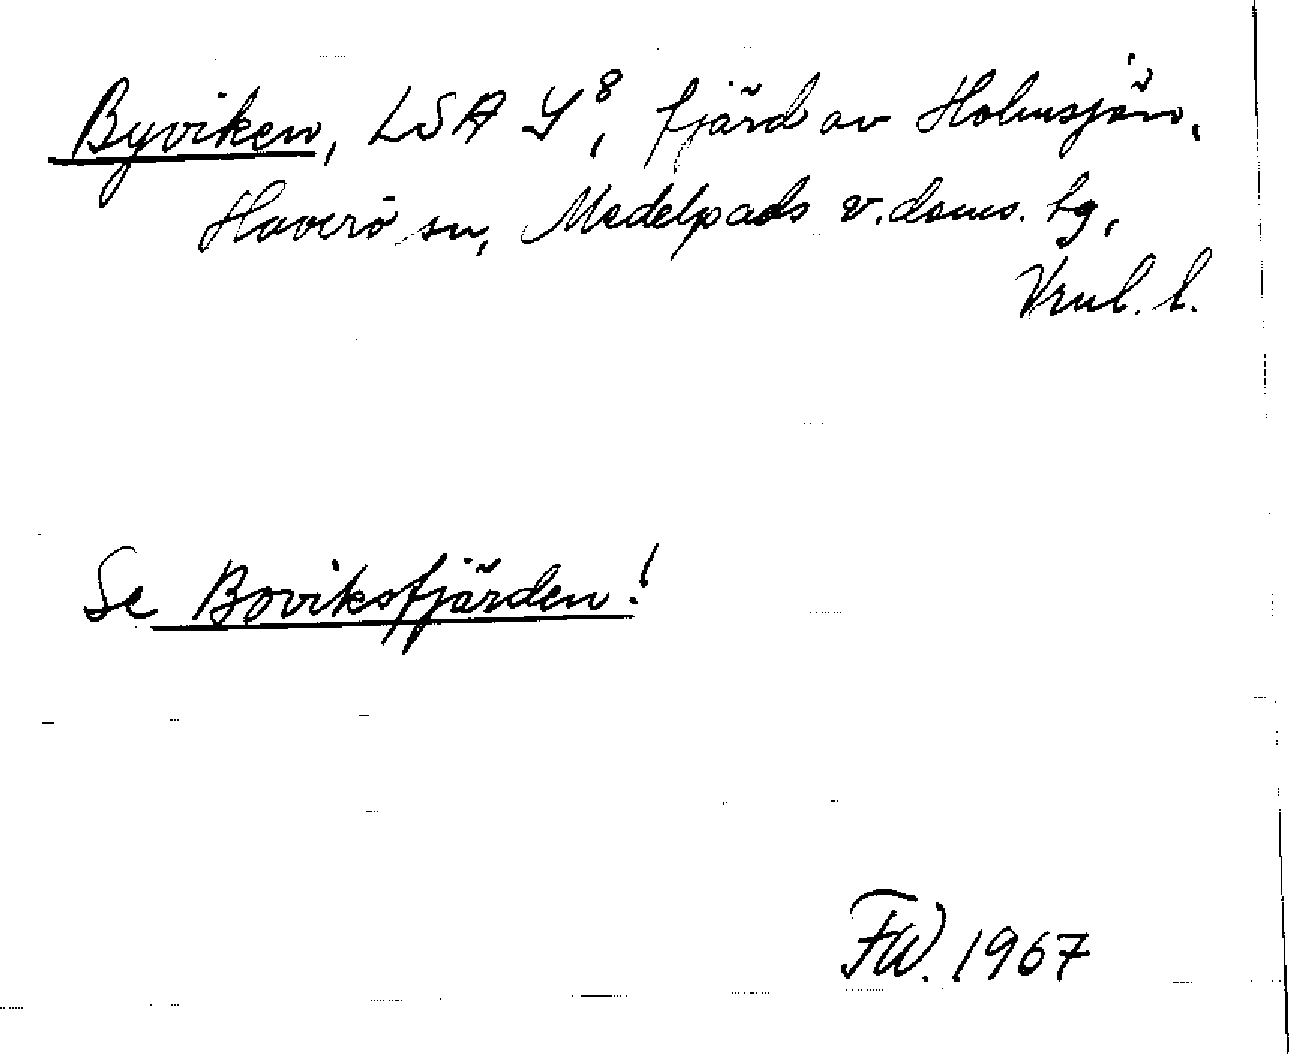 Byviken, LSA Y8, fjärd av Holmsjön,
Haverö sn, Medelpads v. doms. hg,
Vnl. l.
Se Boviksfjärden!
FW. 1967